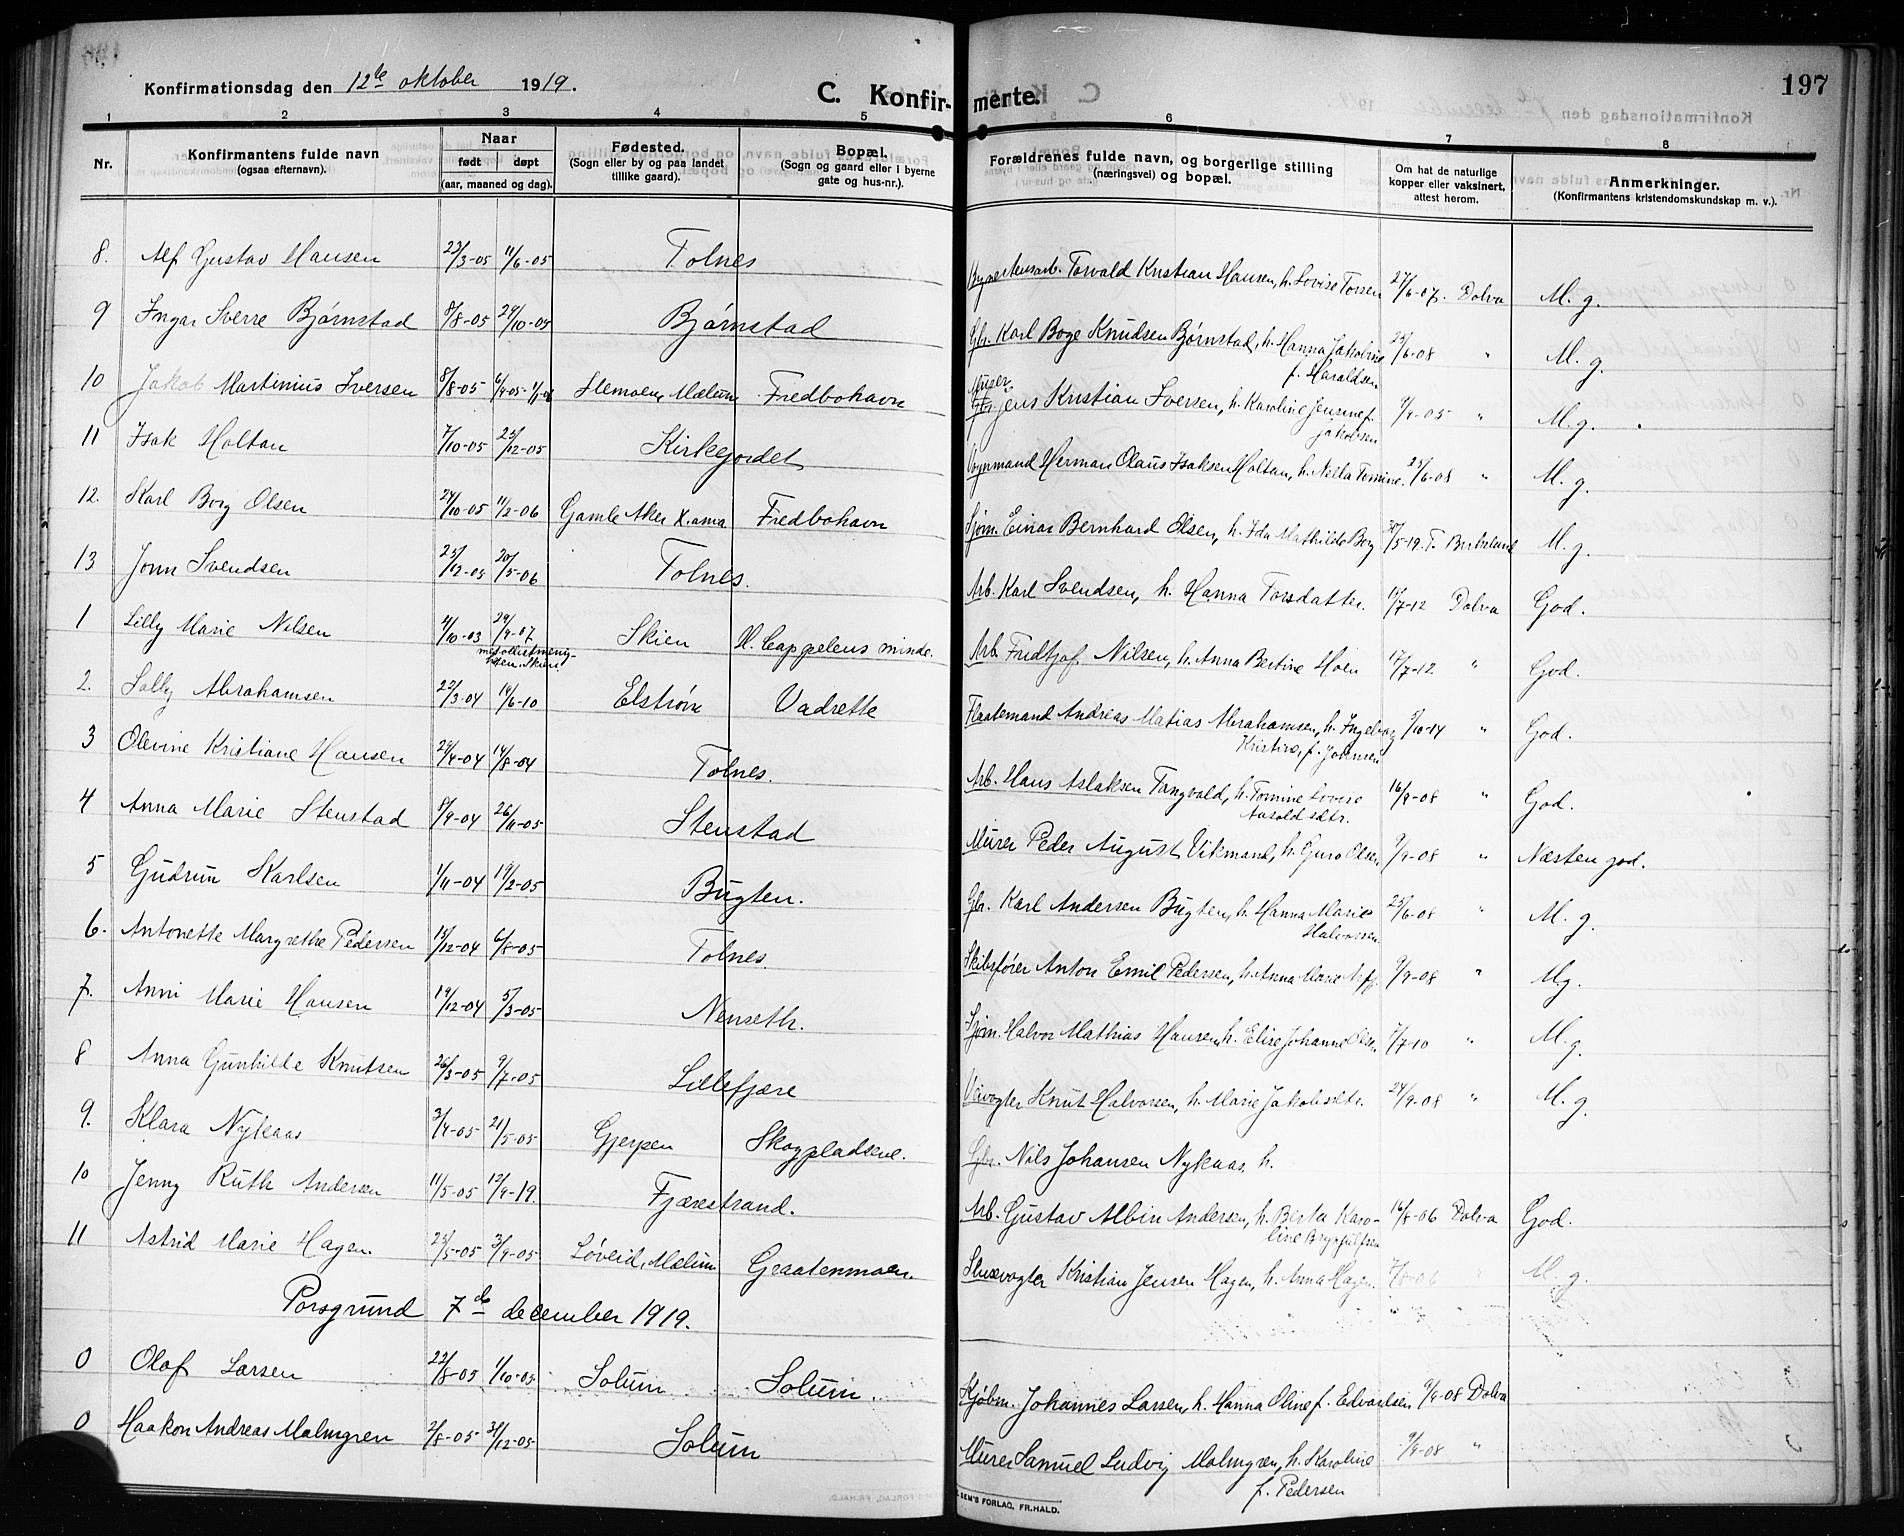 Konfirmationsdag den 12te oktober 1919.
C. Konfirmerte.
197
1 2 3 4 5 6 7 8
Nr.
Konfirmantens fulde navn (ogsaa efternavn).
Naar født døpt (aar, maaned og dag).
Fødested. (Sogn eller by og paa landet tillike gaard).
Bopæl. (Sogn og gaard eller i byerne gate og hus-nr.).
Forældrenes fulde navn, og borgerlige stilling (næringsvei) og bopæl.
Om hat de naturlige kopper eller vaksinert, attest herom.
Anmerkninger. (Konfirmantens kristendomskundskap m. v.).
8. Alf Gustav Hansen 23/3-05 11/6-05 Tolnes Torvald Kristian Hansen, h. Lovise Torsen 27/6-07. Dolva M. g.
9 Ingar Sverre Bjørnstad 8/8-05 29/10-05 Bjørnstad Gbr. Karl Boye Knudsen Bjørnstad, h. Hanna Jakobine f. Haraldsen 25/6-08 " M. g.
10 Jakob Martinius Iversen 8/8-05 Stemoen, Mælum Fredbohavn Jens Kristian Iversen, h. Karoline Jensine f. Jakobsen 7/9-05 " M. g.
11 Isak Holtan 7/10-05 25/12-05 Kirkegordet Vognmand Herman Olaus Isaksen Holtan, h. Nella Tomine. 25/6-08 " M. g.
12. Karl Borg Olsen 24/10-05 11/2-06 Gamle Aker X.ania Fredbohavn Sjøm. Einar Bernhard Olsen, h. Ida Mathilde Borg 30/5-19. T. Birkelund M. g.
13 Jonn Svendsen 25/12-05 20/5-06 Tolnes. Arb. Karl Svendsen, h. Hanna Torsdatter. 17/7-12 Dolva God.
1 Lilly Marie Nilsen 4/10-03 29/9-07 metodistmenigheten. Skien. Skien H. Cappelens minde. Arb. Fridtjof Nilsen, h. Anna Bertine Hoen 17/7-12 " God.
2. Solly Abrahamsen 22/3-04 19/6-10 Elstrøm Vadrette Flaatemand Andreas Matias Abrahamsen, h. Ingeborg Kristine, f. Johnsen 9/10-14 " God.
3 Olevine Kristiane Hansen 29/4-04 14/8-04 Tolnes. Arb. Hans Aslaksen Tangvald, h. Tomine Lovise Aasoldsdtr. 16/9-08 " God.
4 Anna Marie Stenstad 8/9-04 26/11-05 Stenstad Murer Peder August Vikmand, h. Guro Olsen 9/9-08 " Næsten god.
5 Gudrun Karlsen 1/11-04 19/2-05 Bugten. Gbr. Karl Andersen Bugten, h. Hanna Marie Halvorsen. 25/6-08 " M. g.
6. Antonette Margrethe Pedersen 15/12-04 6/8-05 Tolnes. Skibsfører Anton Emil Pedersen, h. Anna Marie 9/9-08 " M.g.
7. Anni Marie Hansen 19/12-04 5/3-05 Nenseth. Sjøm. Halvor Mathias Hansen, h. Elise Johanne Olsen 7/7-10 " M. g.
8 Anna Gunhilde Knutsen 26/3-05 9/7-05 Lillefjære Veivogter Knut Halvorsen, h. Marie Jakobsdtr. 24/9-08 " M. g.
9. Klara Nykaas 3/4-05 21/5-05 Gjerpen Skogpladsene. Gbr. Nils Johansen Nykaas. h.
10 Jenny Ruth Andersen 11/5-05 12/9-19. Fjærestrand. Arb. Gustav Albin Andersen, h. Berta Karoline Brynjulfsen 16/8-06 Dolva God.
11 Astrid Marie Hagen. 25/5-05 3/9-05 Løveid, Mælum Graatenmoen. Slusevogter Kristian Jensen Hagen, h. Anna Hagen. 7/8-06 M. g.
Porsgrund 7de december 1919.
0 Olaf Larsen 22/8-05 1/10-05 Solum Solum. Kjøbm. Johannes Larsen, h. Hanna Oline f. Edvardsen 9/9-08 Dolva
0 Haakon Andreas Malmgren 2/8-05 31/12-05 Solum Murer Samuel Ludvig Malmgren, h. Karoline f. Pedersen 9/9-08 "
SEM'S FORLAG, FR.HALD.